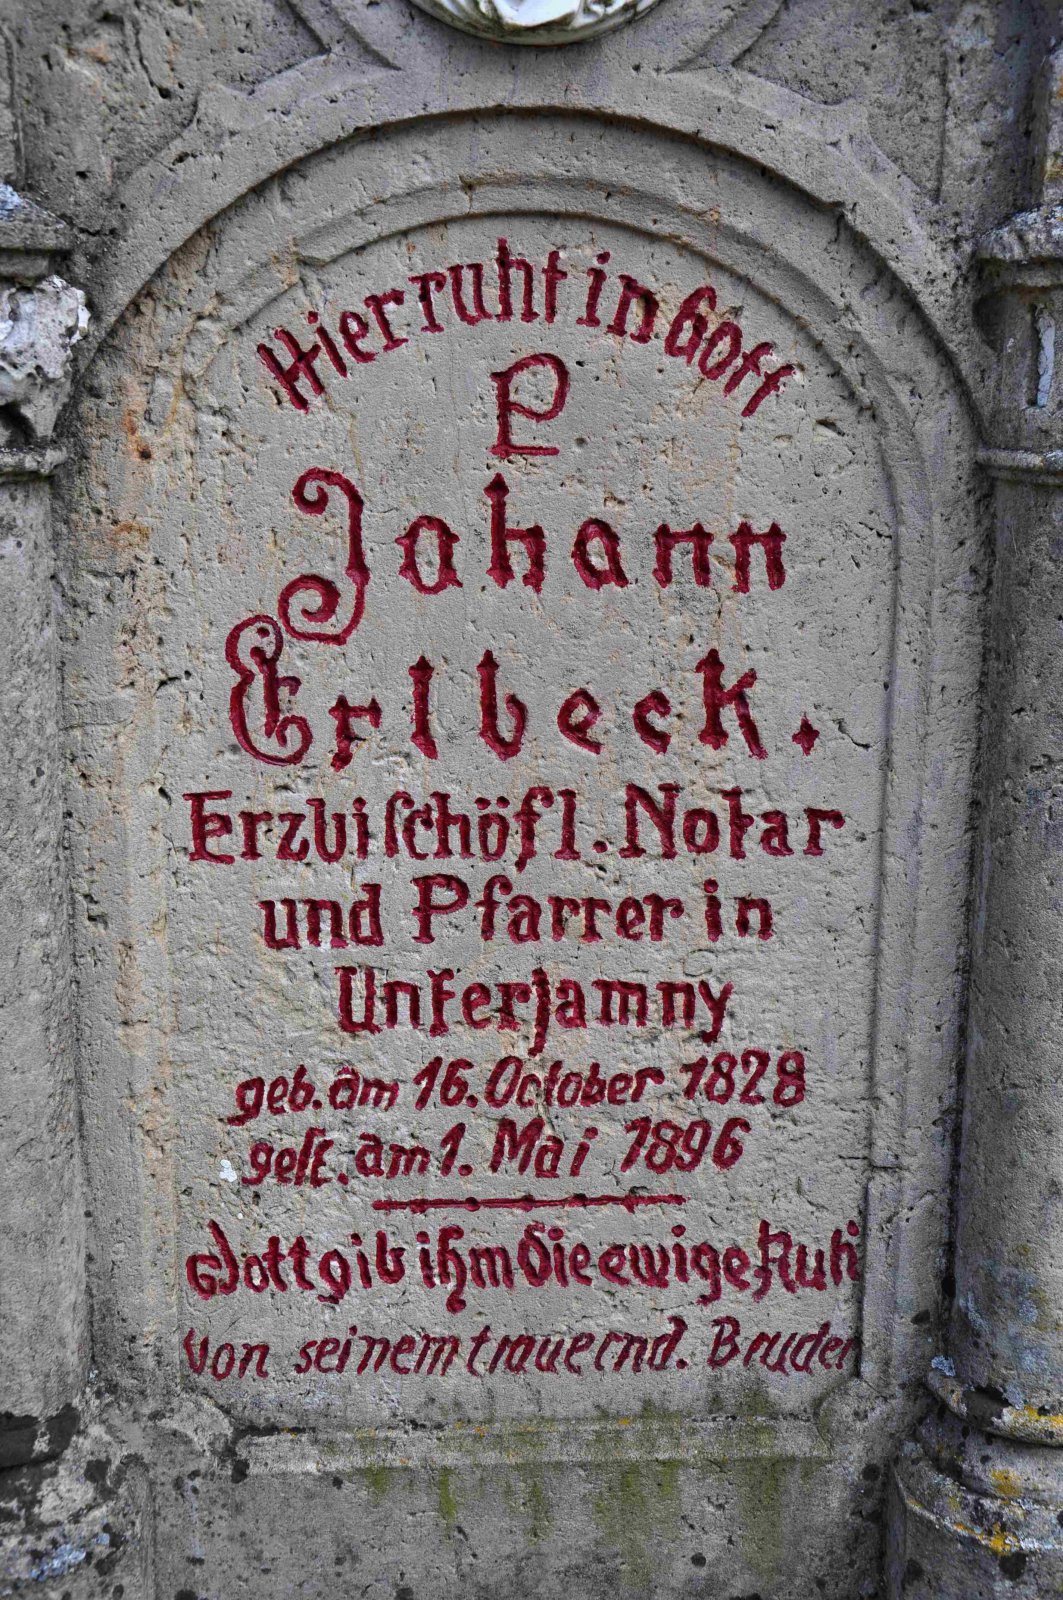 Hier ruht in Gott
P
Johann
Erlbeck.
Erzbischöfl. Notar
und Pfarrer in
Unterjamny
geb. am 16. October 1828
gest. am 1. Mai 1896
Gott gib ihm die ewige Ruh
von seinem trauernd. Bruder